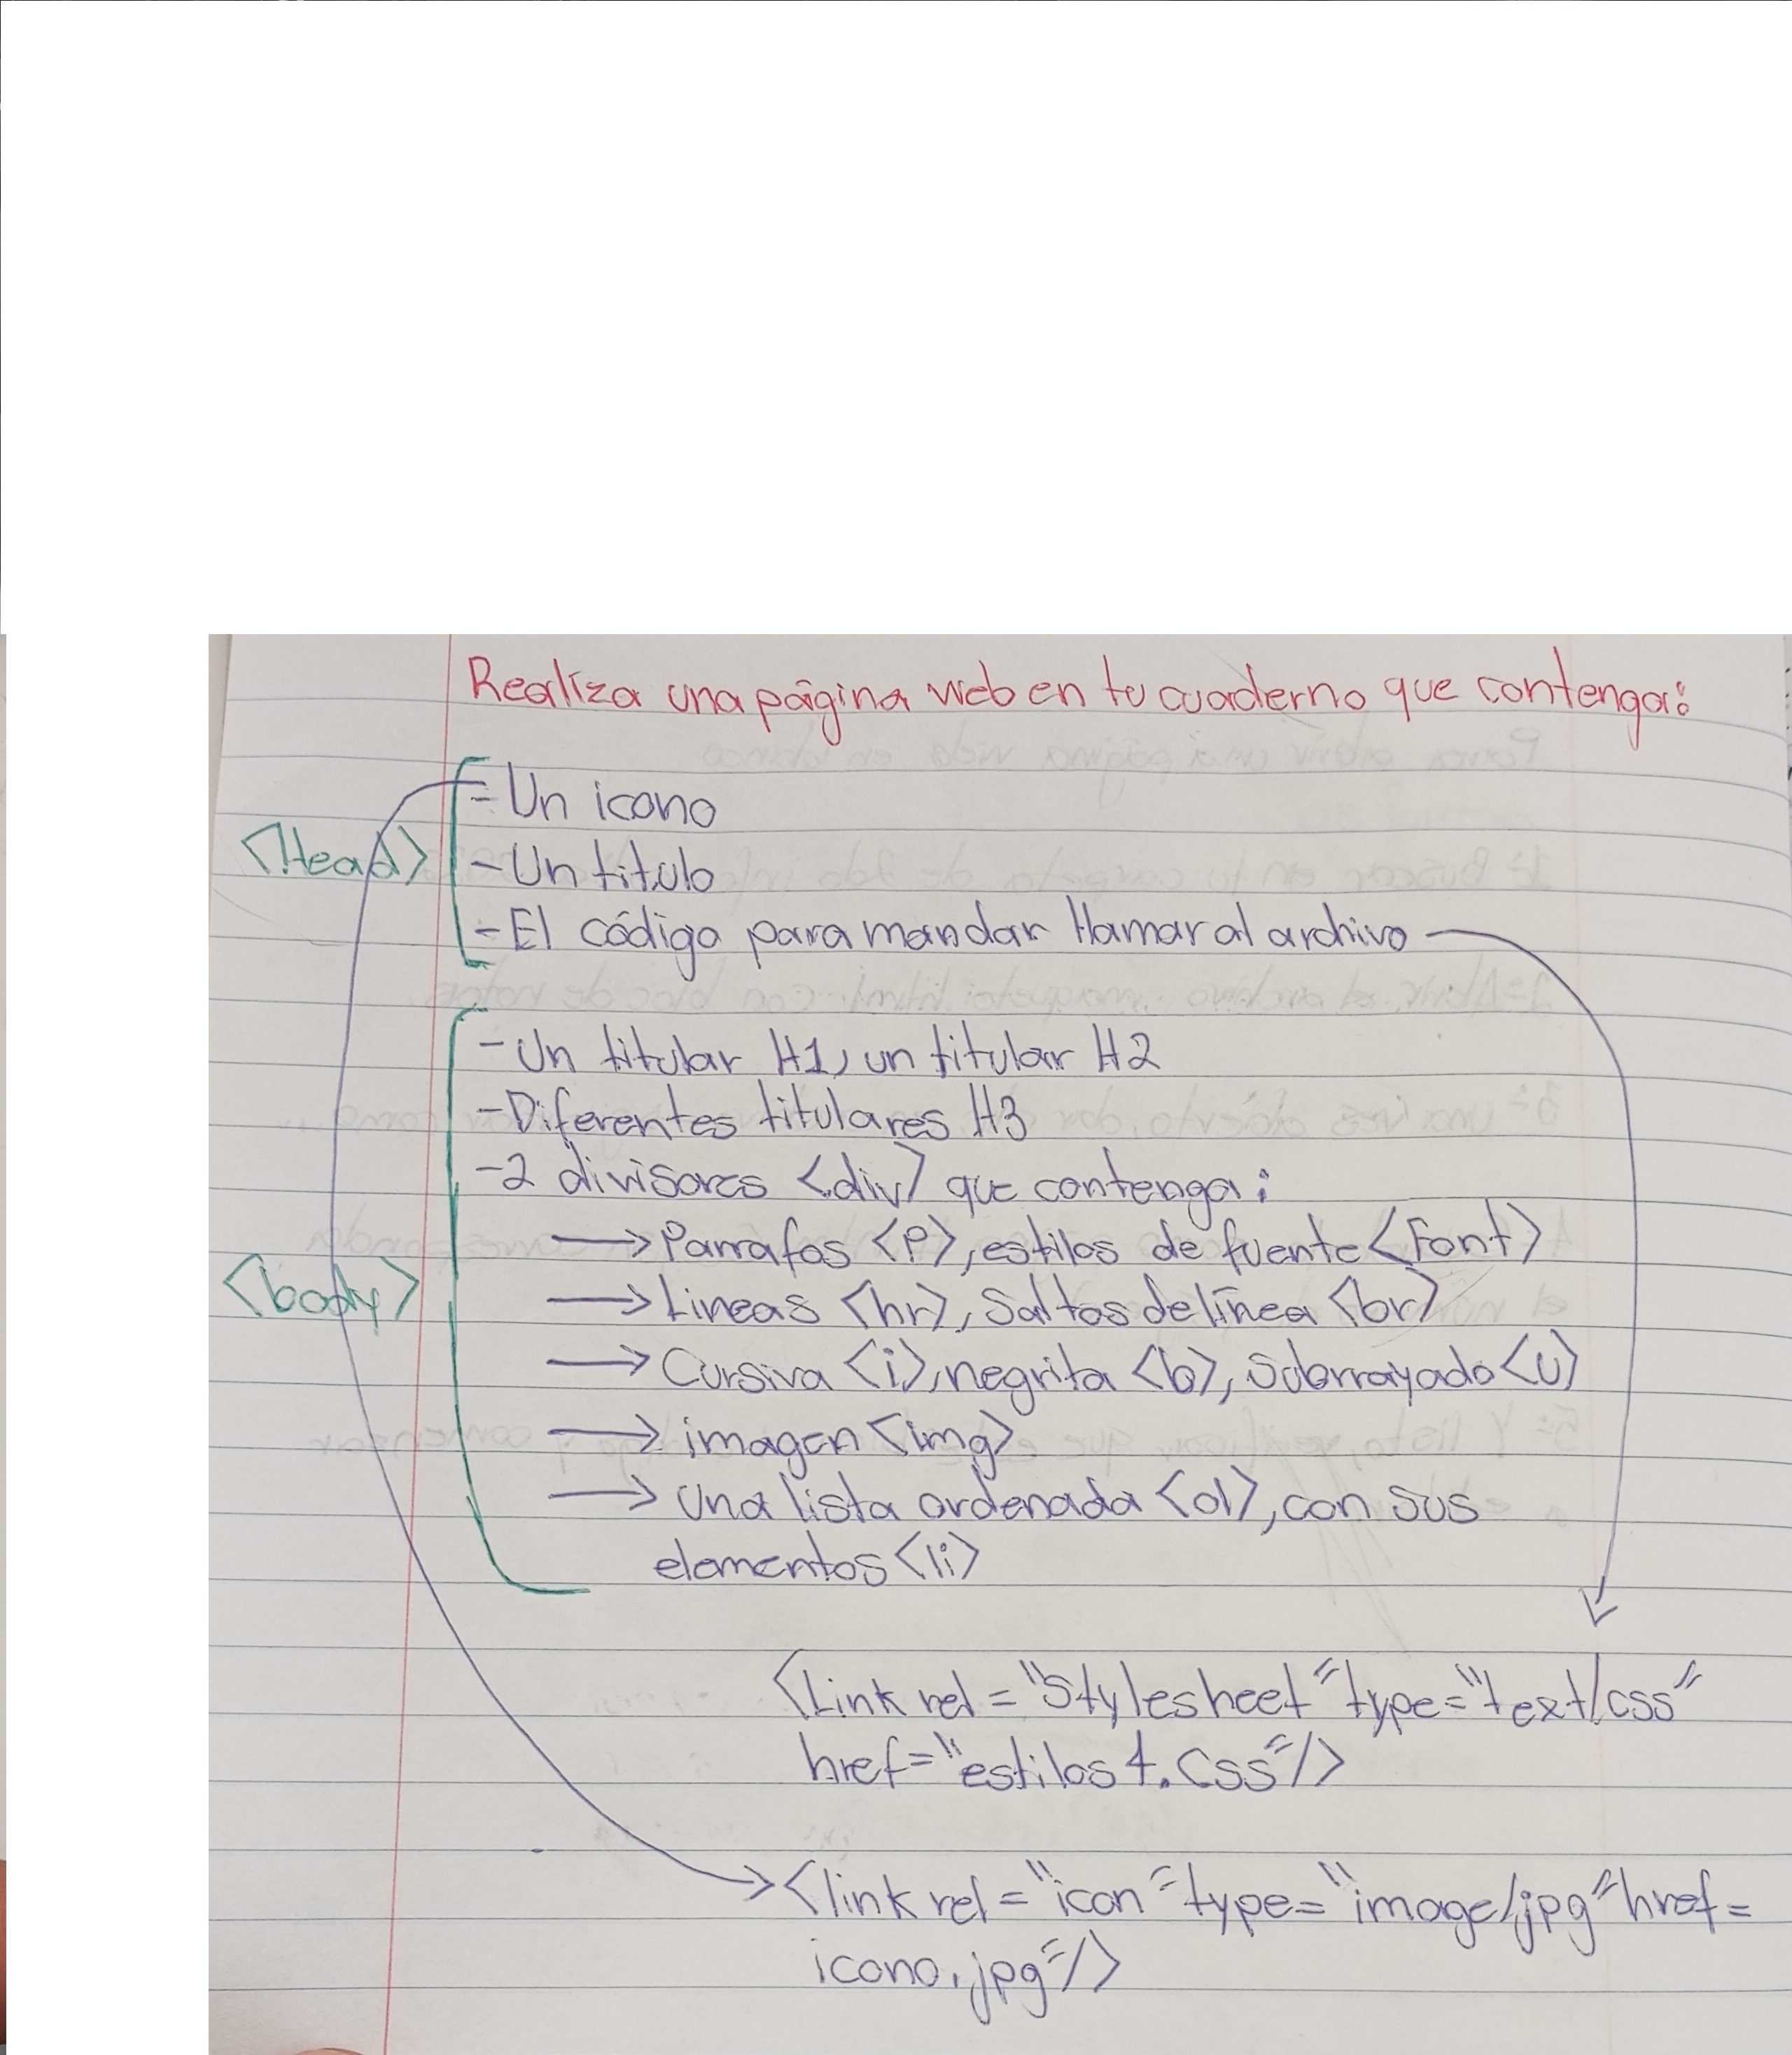 Realiza una página web en tu cuaderno que contenga:
- Un icono
<Head>
- Un titulo
- El código para mandar llamar al archivo
- Un titular H1, un titular H2
- Diferentes titulares H3
- 2 divisores <div> que contenga:
→ Parrafos <P>, estilos de fuente <Font>
<body>
→ Lineas <hr>, Saltos de línea <br>
→ Cursiva <i>, negrita <b>, Subrrayado <u>
→ imagen <img>
→ Una lista ordenada <ol>, con sus
elementos <li>
<Link rel = "Stylesheet" type="text/css"
href="estilos4.Css"/>
<link rel = "icon" type= "image/jpg" href=
icono.jpg"/>